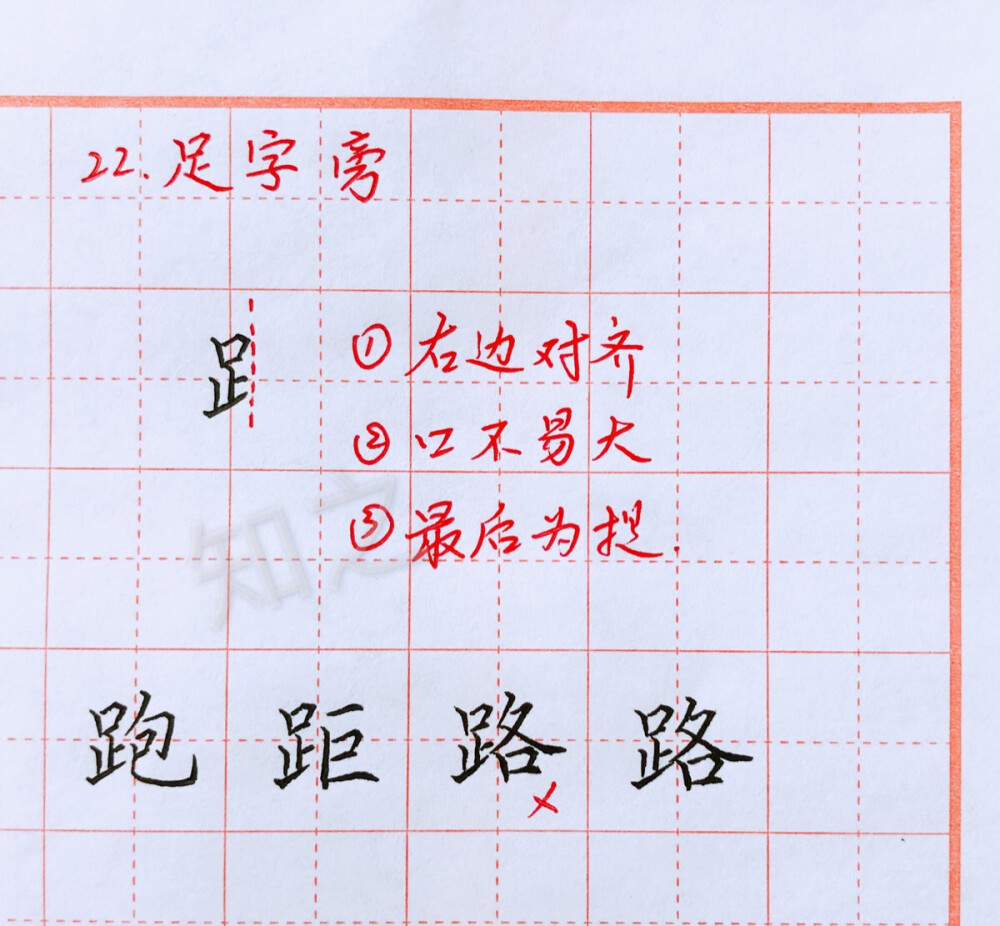 22.足字旁
①右边对齐
②口不易大
③最后为提.
知之
跑 距 路 路